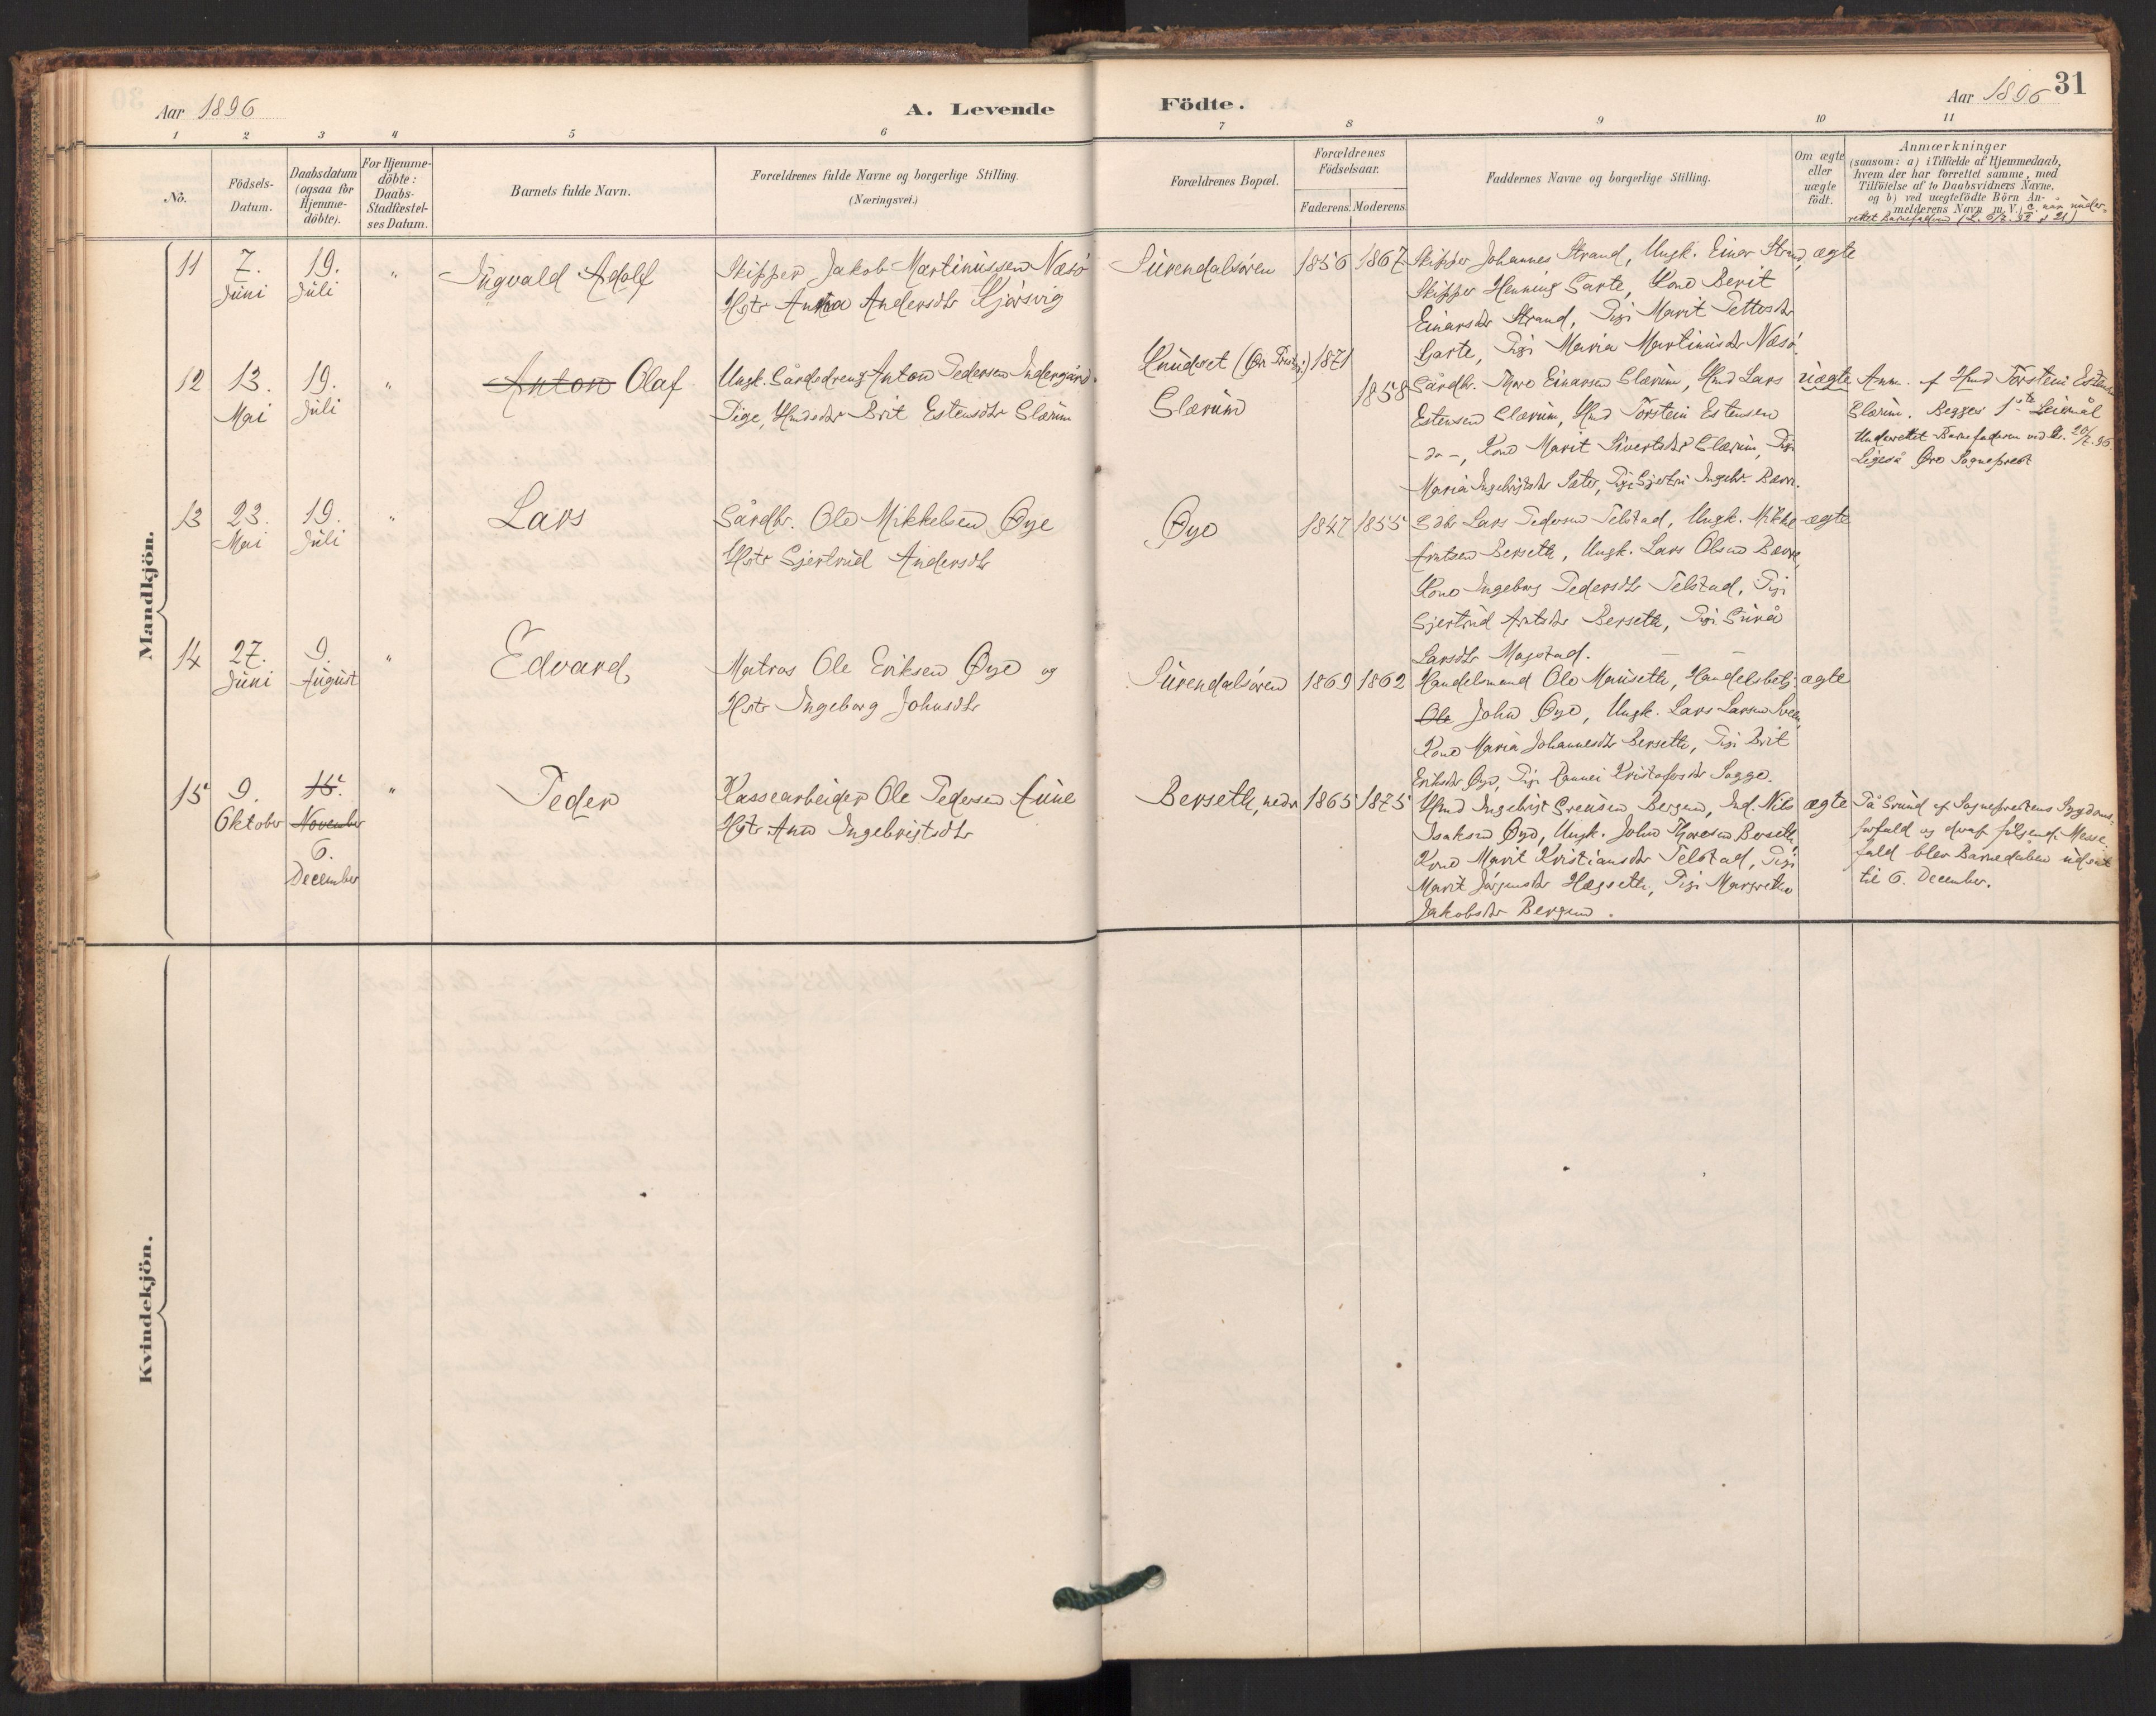 Aar 1896
A. Levende
Födte.
Aar 1896
31
1 2 3 4 5 6 7 8 9 10 11
No.
Födsels-
Datum.
Daabsdatum
(ogsaa for
Hjemme-
döbte).
For Hjemme-
döbte:
Daabs-
Stadfæstel-
ses Datum.
Barnets fulde Navn.
Forældrenes fulde Navne og borgerlige Stilling.
(Næringsvei.)
Forældrenes Bopæl.
Forældrenes
Födselsaar.
Faderens. Moderens.
Faddernes Navne og borgerlige Stilling.
Om ægte
eller
uægte
födt.
Anmærkninger
(saasom: a) i Tilfælde af Hjemmedaab,
hvem der har forrettet samme, med
Tilföielse af to Daabsvidners Navne.
og b) ved uægtefödte Börn An-
melderens Navn m. V.)
Mandkjön.
11
7.
Juni
19.
Juli
"
Ingvald Adolf
Skipper Jakob Martinussen Næsö
Hstr Anna Andersdtr Gjörsvig
Surendalsören
1856
1867
Skipper Johannes Strand, Ungk. Einar Strand,
Skipper Henning Garte, Kone Berit
Einarsdtr Strand, Pige Marit
Garte, Pige Maria Martinusdtr Næsö.
ægte
12
13.
Mai
19.
Juli
"
Anton Olaf
Ungk. Gårdsdreng Anton Pedersen Indergård.
Pige, Hmdsdtr Brit Estensdtr Glærum
Knudset
Glærum
1871
1858
Gårdbr. Thore Einarsen Glærum, Hmd Lars
Estensen Glærum, Hmd Torstein Estensen
- do -, Kone Marit Sivertsdtr Glærum, Pige
Maria Ingebrigtsdtr Sæter, Pige Gjertru Ingebr.
uægte
Anm. af Hmd Torstein Estensen
Glærum. Begges 1ste Leiermål
Underrettet Barnefaderen ved
Ligeså Øre Sogneprest
13
23.
Mai
19.
Juli
"
Lars
Gårdbr. Ole Mikkelsen Øye
Hstr Gjertrud Andersdtr
Øye
1847
1855
Gdbr Lars Pedersen Telstad, Ungk. Mikkel
Arntsen Berseth, Ungk. Lars Olsen Bævre,
Kone Ingeborg Pedersdtr Telstad, Pige
Gjertrud Arntsdtr Berseth, Pige Guro
Larsdtr Mogstad.
ægte
14
27.
Juni
9.
August
"
Edvard,
Matros Ole Eriksen Øye og
Hstr Ingeborg Johnsdtr
Surendalsören
1869
1862
Handelsmand Ole Mauseth, Handelsbetj.
Ole John Øye, Ungk. Lars Larsen
Kone Maria Johannesdtr Berseth, Pige Brit
Eriksdtr Øye, Pige Rannei Kristofersdtr Sagge.
ægte
15
9.
Oktober
15.
November
6.
December
"
Peder
Kassearbeider Ole Pedersen Aune
Hstr Ane Ingebrigtsdtr
Berseth, nedr
1865
1875
Hmd Ingebrigt Evensen Bergem, Ind. Nils
Isaksen Øye, Ungk. John Thoresen Berseth,
Kone Marit Kristiansdtr Telstad, Pige
Marit Jörgensdtr Hægseth, Pige Margrethe
Jakobsdtr Bergem.
ægte
På Grund af Sogneprestens Sygdoms-
forfald og deraf fölgende Messe-
fald blev Barnedåben udsat
til 6. December.
Kvindekjön.